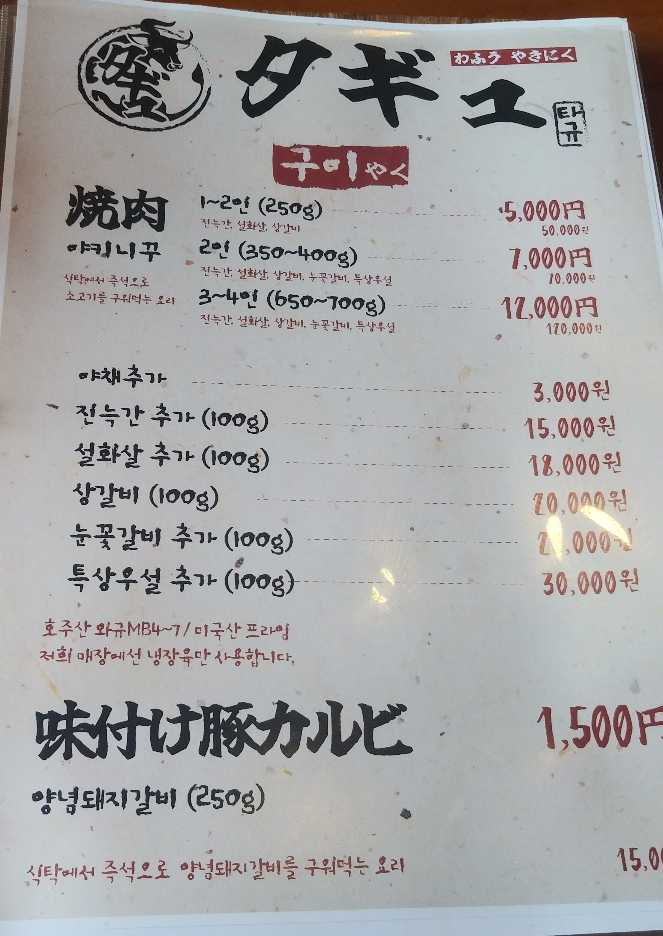 タギュ
タギュ
わふう やきにく
태규
구이 やく
焼肉
야키니꾸
식탁에서 즉석으로
소고기를 구워먹는 요리
1~2인 (250g) 5,000円
진늑간, 설화살, 상갈비 50,000원
2인 (350~400g) 7,000円
진늑간, 설화살, 상갈비, 눈꽃갈비, 특상우설 70,000원
3~4인 (650~700g) 12,000円
진늑간, 설화살, 상갈비, 눈꽃갈비, 특상우설 120,000원
야채추가 3,000원
진늑간 추가 (100g) 15,000원
설화살 추가 (100g) 18,000원
상갈비 (100g) 20,000원
눈꽃갈비 추가 (100g)
특상우설 추가 (100g) 30,000원
호주산 와규MB4~7 / 미국산 프라임
저희 매장에선 냉장육만 사용합니다.
味付け豚カルビ 1,500円
양념돼지갈비 (250g)
식탁에서 즉석으로 양념돼지갈비를 구워먹는 요리